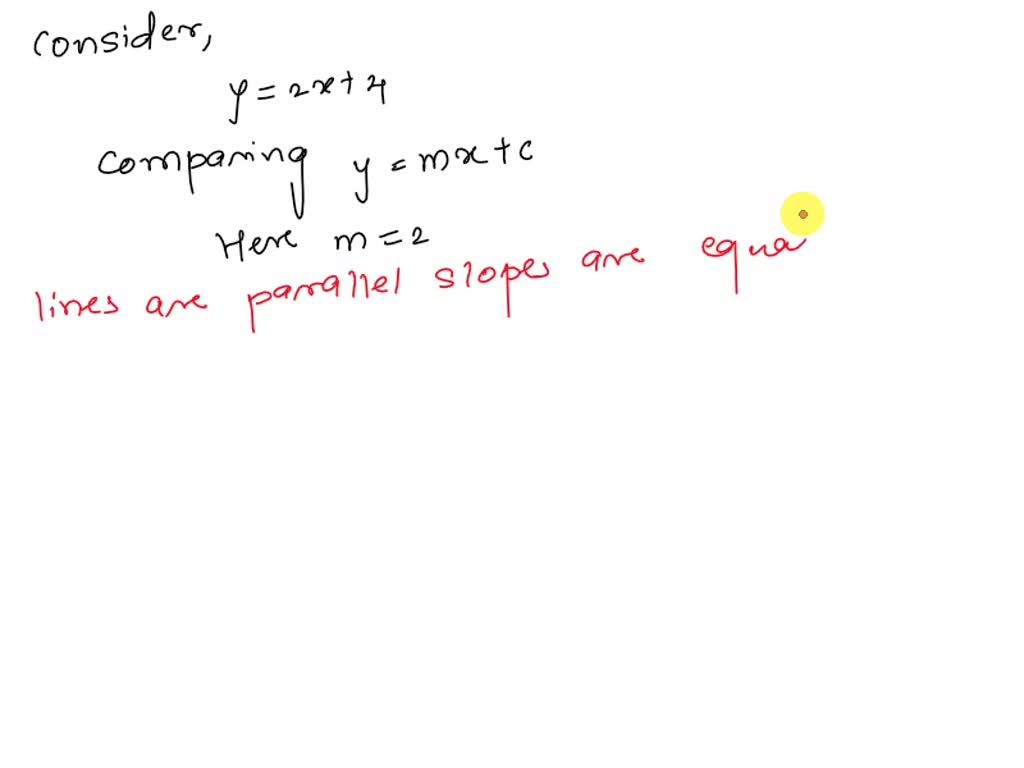 consider,
y = 2x + 4
comparing y = mx + c
Here m = 2
lines are parallel slopes are equa